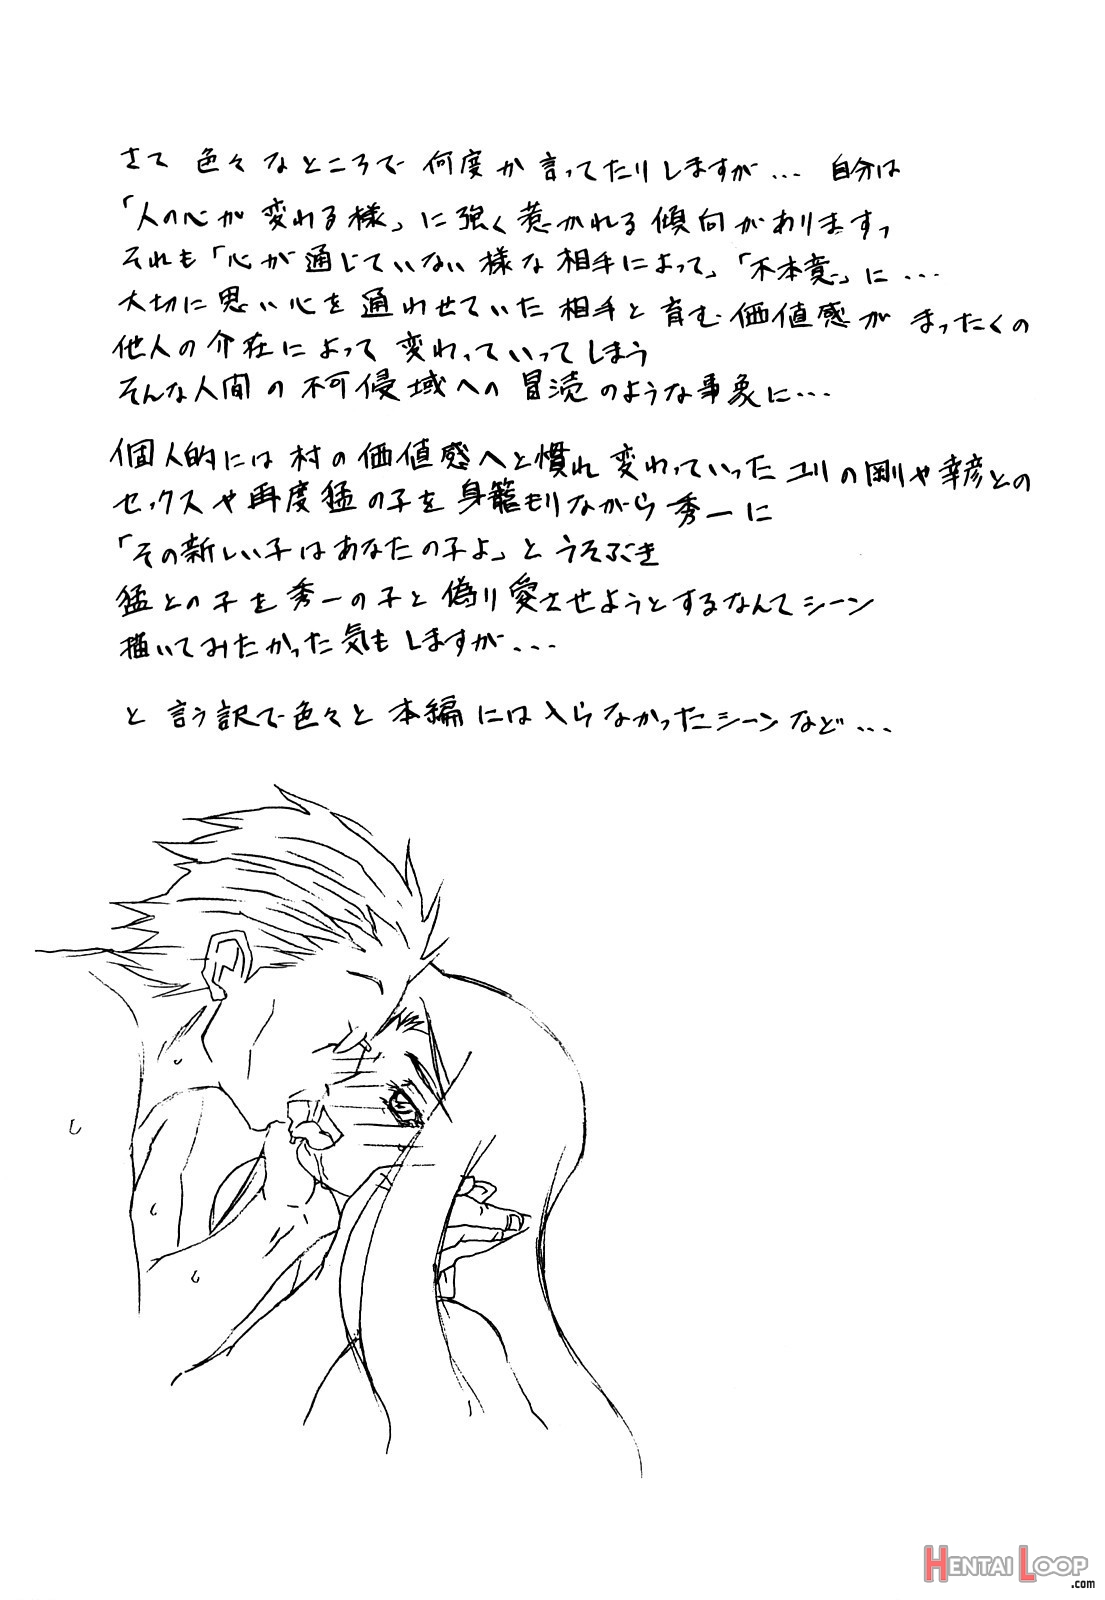 さて 色々なところで 何度か 言ってたりしますが... 自分は
「人の心が 変わる様」に強く惹かれる傾向がありますっ
それも「心が通じていない様な相手によって」「不本意」に...
大切に思い心を通わせていた相手と育む価値感が まったくの
他人の介在によって 変わっていってしまう
そんな人間の不可侵域への冒涜のような事象に...
個人的には村の価値感へと慣れ変わっていったユリの剛や幸彦との
セックスや再度猛の子を身籠もりながら秀一に
「その新しい子はあなたの子よ」とうそぶき
猛との子を秀一の子と偽り愛させようとするなんてシーン
描いてみたかった気もしますが...
と言う訳で色々と本編には入らなかったシーンなど...
HENTAI LOOP
.com